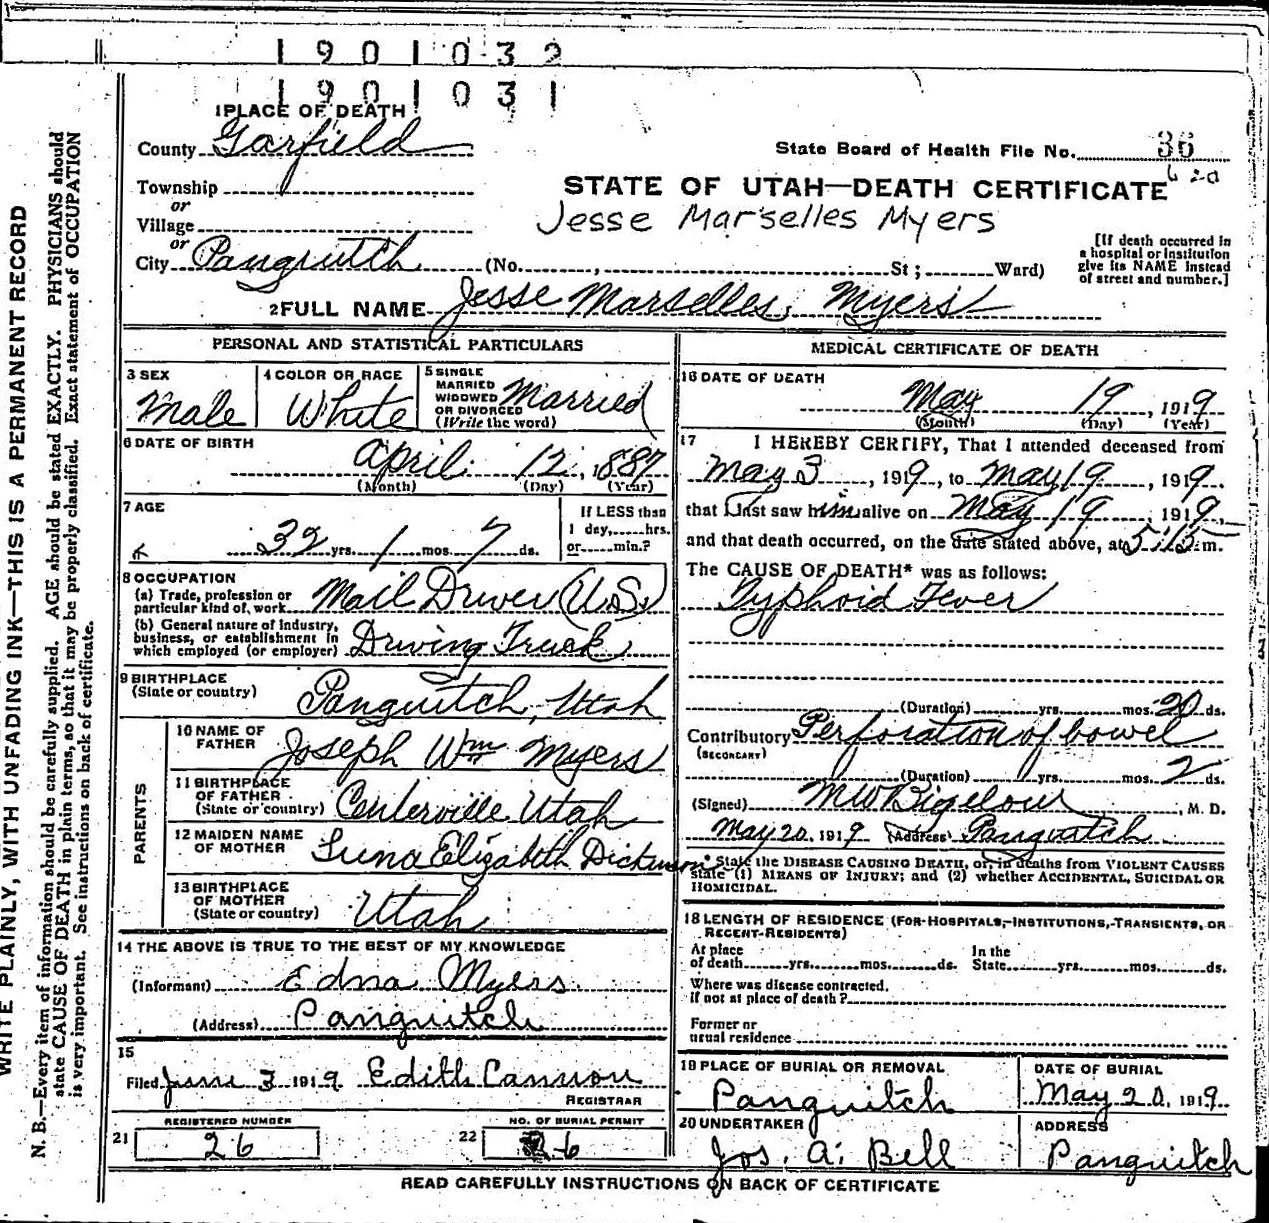 1901032
1901031
1 PLACE OF DEATH
County Garfield
State Board of Health File No. 36
Township
or
STATE OF UTAH—DEATH CERTIFICATE
Village
Jesse Marselles Myers
or
City Panguitch (No. , St; Ward)
[If death occurred in
a hospital or institution
give its NAME instead
of street and number.]
2 FULL NAME Jesse Marselles Myers
PERSONAL AND STATISTICAL PARTICULARS
3 SEX
Male
4 COLOR OR RACE
White
5 SINGLE
MARRIED
WIDOWED
OR DIVORCED
(Write the word)
Married
6 DATE OF BIRTH
April 12, 1887
(Month) (Day) (Year)
7 AGE
32 yrs. 1 mos. 7 ds.
If LESS than
1 day, hrs.
or min.?
8 OCCUPATION
(a) Trade, profession or
particular kind of work Mail Driver (U.S.)
(b) General nature of industry,
business, or establishment in
which employed (or employer) Driving Truck
9 BIRTHPLACE
(State or country) Panguitch, Utah
PARENTS
10 NAME OF
FATHER Joseph Wm Myers
11 BIRTHPLACE
OF FATHER
(State or country) Centerville Utah
12 MAIDEN NAME
OF MOTHER Luna Elizabeth Dickinson
13 BIRTHPLACE
OF MOTHER
(State or country) Utah
14 THE ABOVE IS TRUE TO THE BEST OF MY KNOWLEDGE
(Informant) Edna Myers
(Address) Panguitch
15
Filed June 3 1919 Edith Cannon
REGISTRAR
REGISTERED NUMBER
21 26
NO. OF BURIAL PERMIT
22 26
MEDICAL CERTIFICATE OF DEATH
16 DATE OF DEATH
May 19, 1919
(Month) (Day) (Year)
17 I HEREBY CERTIFY, That I attended deceased from
May 3, 1919, to May 19, 1919.
that I last saw him alive on May 19 1919,
and that death occurred, on the date stated above, at 5:15 m.
The CAUSE OF DEATH* was as follows:
Typhoid Fever
(Duration) yrs. mos. 20 ds.
Contributory Perforation of bowel
(SECONDARY)
(Duration) yrs. mos. 2 ds.
(Signed) M W Bigelow, M. D.
May 20, 1919 (Address) Panguitch
* State the DISEASE CAUSING DEATH, or, in deaths from VIOLENT CAUSES
state (1) MEANS OF INJURY; and (2) whether ACCIDENTAL, SUICIDAL OR
HOMICIDAL.
18 LENGTH OF RESIDENCE (FOR HOSPITALS, INSTITUTIONS, TRANSIENTS, OR
RECENT RESIDENTS)
At place In the
of death yrs. mos. ds. State yrs. mos. ds.
Where was disease contracted.
if not at place of death?
Former or
usual residence
19 PLACE OF BURIAL OR REMOVAL
Panguitch
DATE OF BURIAL
May 20, 1919
20 UNDERTAKER
Jos. A. Bell
ADDRESS
Panguitch
READ CAREFULLY INSTRUCTIONS ON BACK OF CERTIFICATE
WRITE PLAINLY, WITH UNFADING INK—THIS IS A PERMANENT RECORD
N. B.—Every item of information should be carefully supplied. AGE should be stated EXACTLY. PHYSICIANS should
state CAUSE OF DEATH in plain terms, so that it may be properly classified. Exact statement of OCCUPATION
is very important. See instructions on back of certificate.